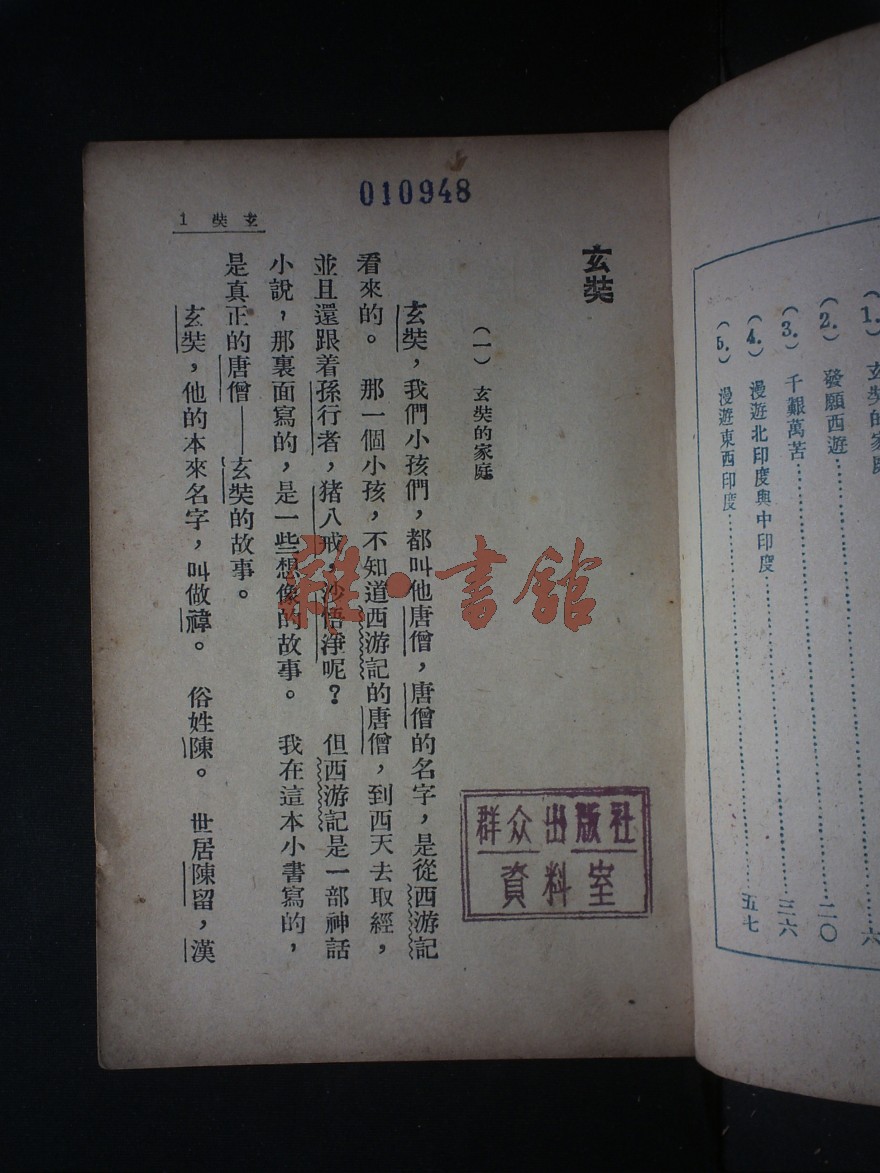 010948
玄奘 1
玄奘
(一) 玄奘的家庭
玄奘，我們小孩們，都叫他唐僧，唐僧的名字，是從西游記
看來的。 那一個小孩，不知道西游記的唐僧，到西天去取經，
並且還跟着孫行者，猪八戒，沙悟淨呢？ 但西游記是一部神話
小說，那裏面寫的，是一些想像的故事。 我在這本小書寫的，
是真正的唐僧——玄奘的故事。
玄奘，他的本來名字，叫做禕。 俗姓陳。 世居陳留，漢
群众出版社
資料室
雜·書館
(1.) 玄奘的家庭
(2.) 發願西遊……二〇
(3.) 千艱萬苦……三六
(4.) 漫遊北印度與中印度……
(5.) 漫遊東西印度……五七